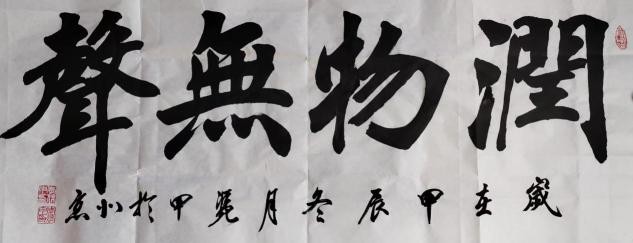 潤物無聲
歲在甲辰冬月冕甲於北京